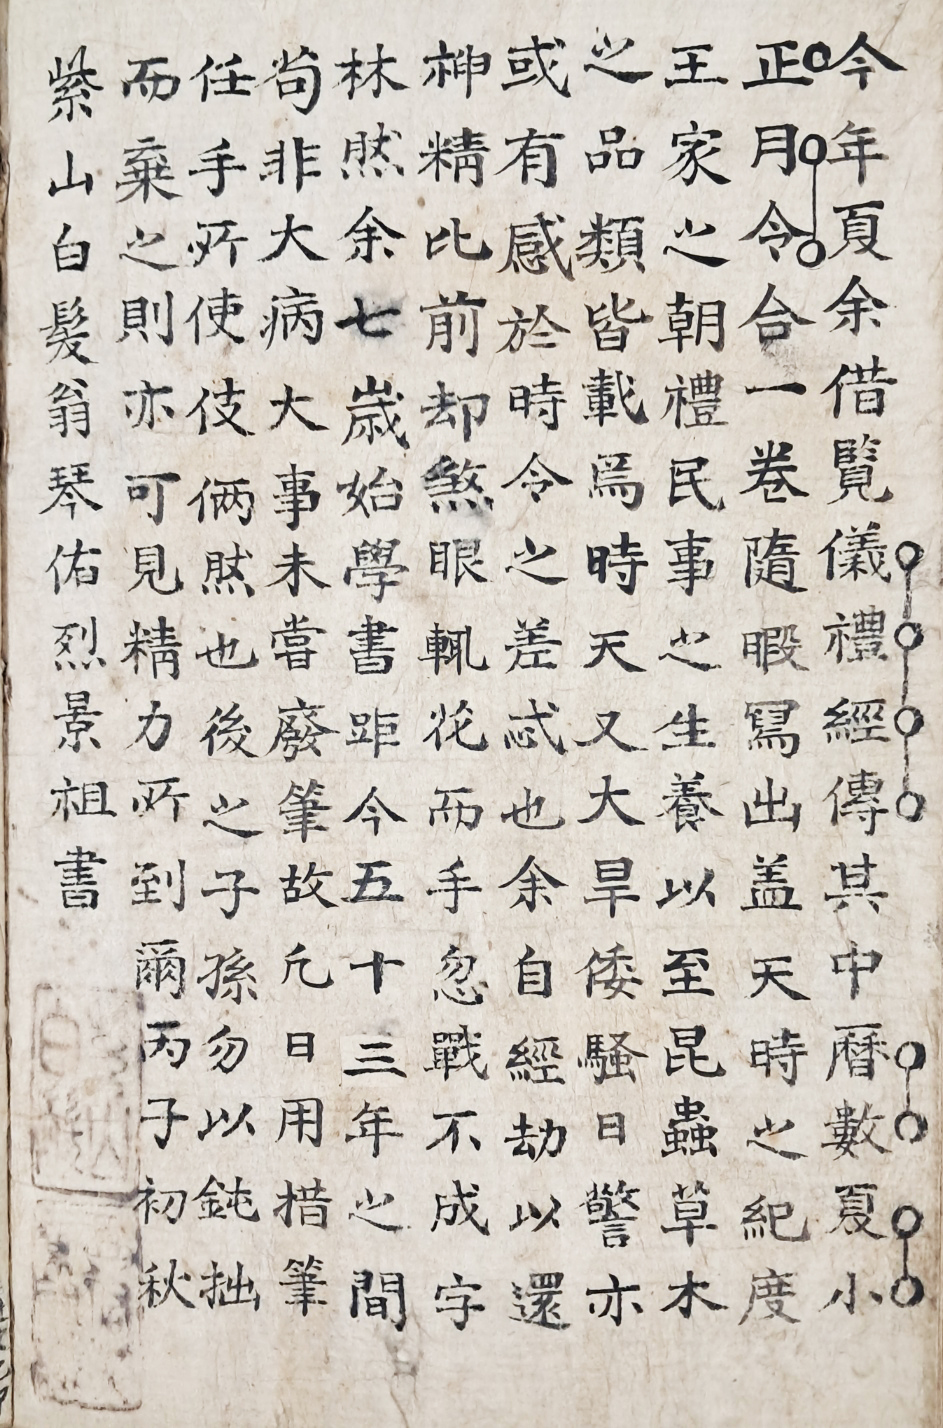 今年夏余借覧儀禮經傳其中曆數夏小
正月令合一卷隨暇冩出盖天時之紀度
王家之朝禮民事之生養以至昆蟲草木
之品類皆載焉時天又大旱倭騷日警亦
或有感於時令之差忒也余自經劫以還
神精比前却煞眼輒花而手忽戰不成字
林然余七歲始學書距今五十三年之間
苟非大病大事未嘗廢筆故凢日用措筆
任手所使伎倆然也後之子孫勿以鈍拙
而棄之則亦可見精力所到爾丙子初秋
紫山白髮翁琴佑烈景祖書